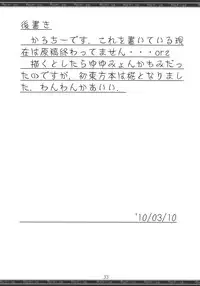 後書き
かろちーです。これを書いている現
在は原稿終わってません・・・orz
描くとしたらゆゆみょんかもみだっ
たのですが、初東方本は椛となりまし
た。わんわんかあいい。
'10/03/10
33